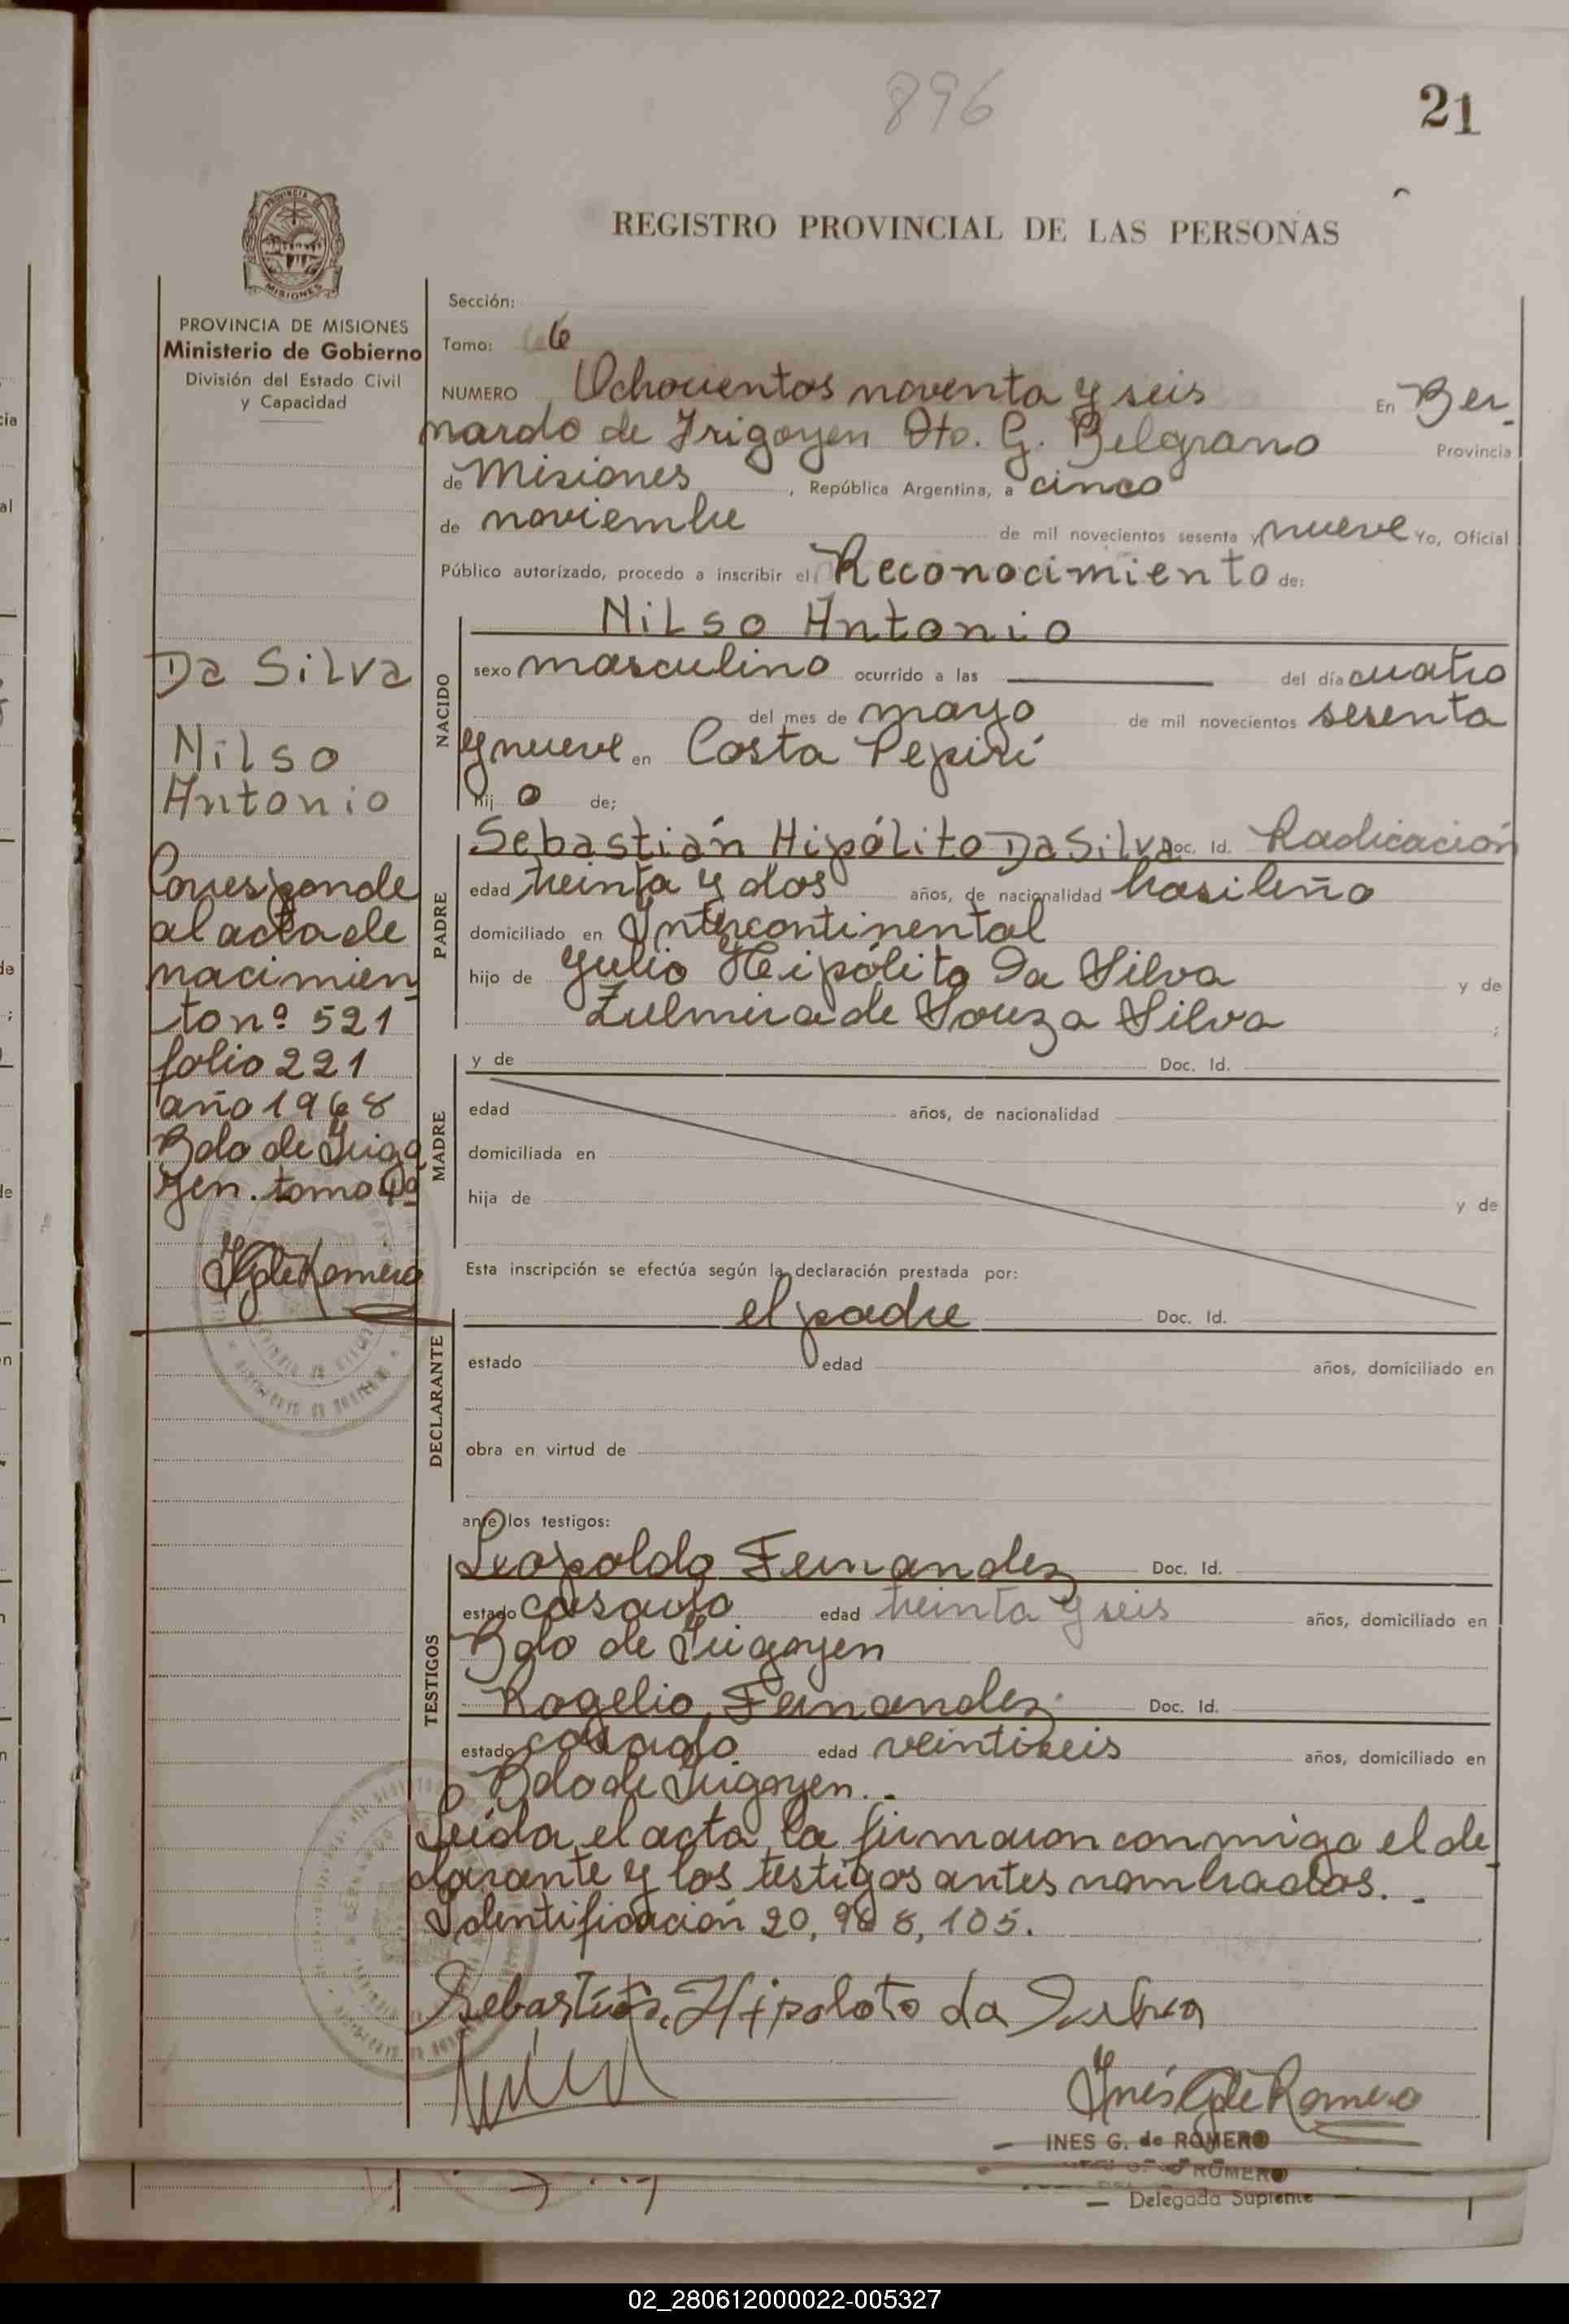 896
21
REGISTRO PROVINCIAL DE LAS PERSONAS
PROVINCIA DE MISIONES
Ministerio de Gobierno
División del Estado Civil
y Capacidad
Da Silva
Nilso
Antonio
Corresponde
al acta de
nacimien
to nº 521
folio 221
año 1968
Bdo de Irigo
yen. tomo 4º
IGdeRomero
Sección:
Tomo: 6
NUMERO Ochocientos noventa y seis En Ber-
nardo de Irigoyen Dto. G. Belgrano Provincia
de Misiones, República Argentina, a cinco
de noviembre de mil novecientos sesenta y nueve Yo, Oficial
Público autorizado, procedo a inscribir el Reconocimiento de:
NACIDO
Nilso Antonio
sexo masculino ocurrido a las ——— del día cuatro
del mes de mayo de mil novecientos sesenta
y nueve en Costa Pepirí
hij o de;
PADRE
Sebastián Hipólito Da Silva Doc. Id. Radicación
edad treinta y dos años, de nacionalidad brasileño
domiciliado en Intercontinental
hijo de Julio Hipólito Da Silva y de
Zulmira de Souza Silva ;
MADRE
y de Doc. Id.
edad años, de nacionalidad
domiciliada en
hija de y de
Esta inscripción se efectúa según la declaración prestada por:
DECLARANTE
el padre Doc. Id.
estado edad años, domiciliado en
obra en virtud de
ante los testigos:
TESTIGOS
Leopoldo Fernandez Doc. Id.
estado casado edad treinta y seis años, domiciliado en
Bdo de Irigoyen
Rogelio Fernandez Doc. Id.
estado casado edad veintiseis años, domiciliado en
Bdo de Irigoyen.-
Leída el acta la firmaron conmigo el de-
clarante y los testigos antes nombrados.-
Identificación 20,988,105.
Hipoloto da
Inés GdeRomero
INES G. de ROMERO
ROMERO
Delegada Suplente
02_280612000022-005327